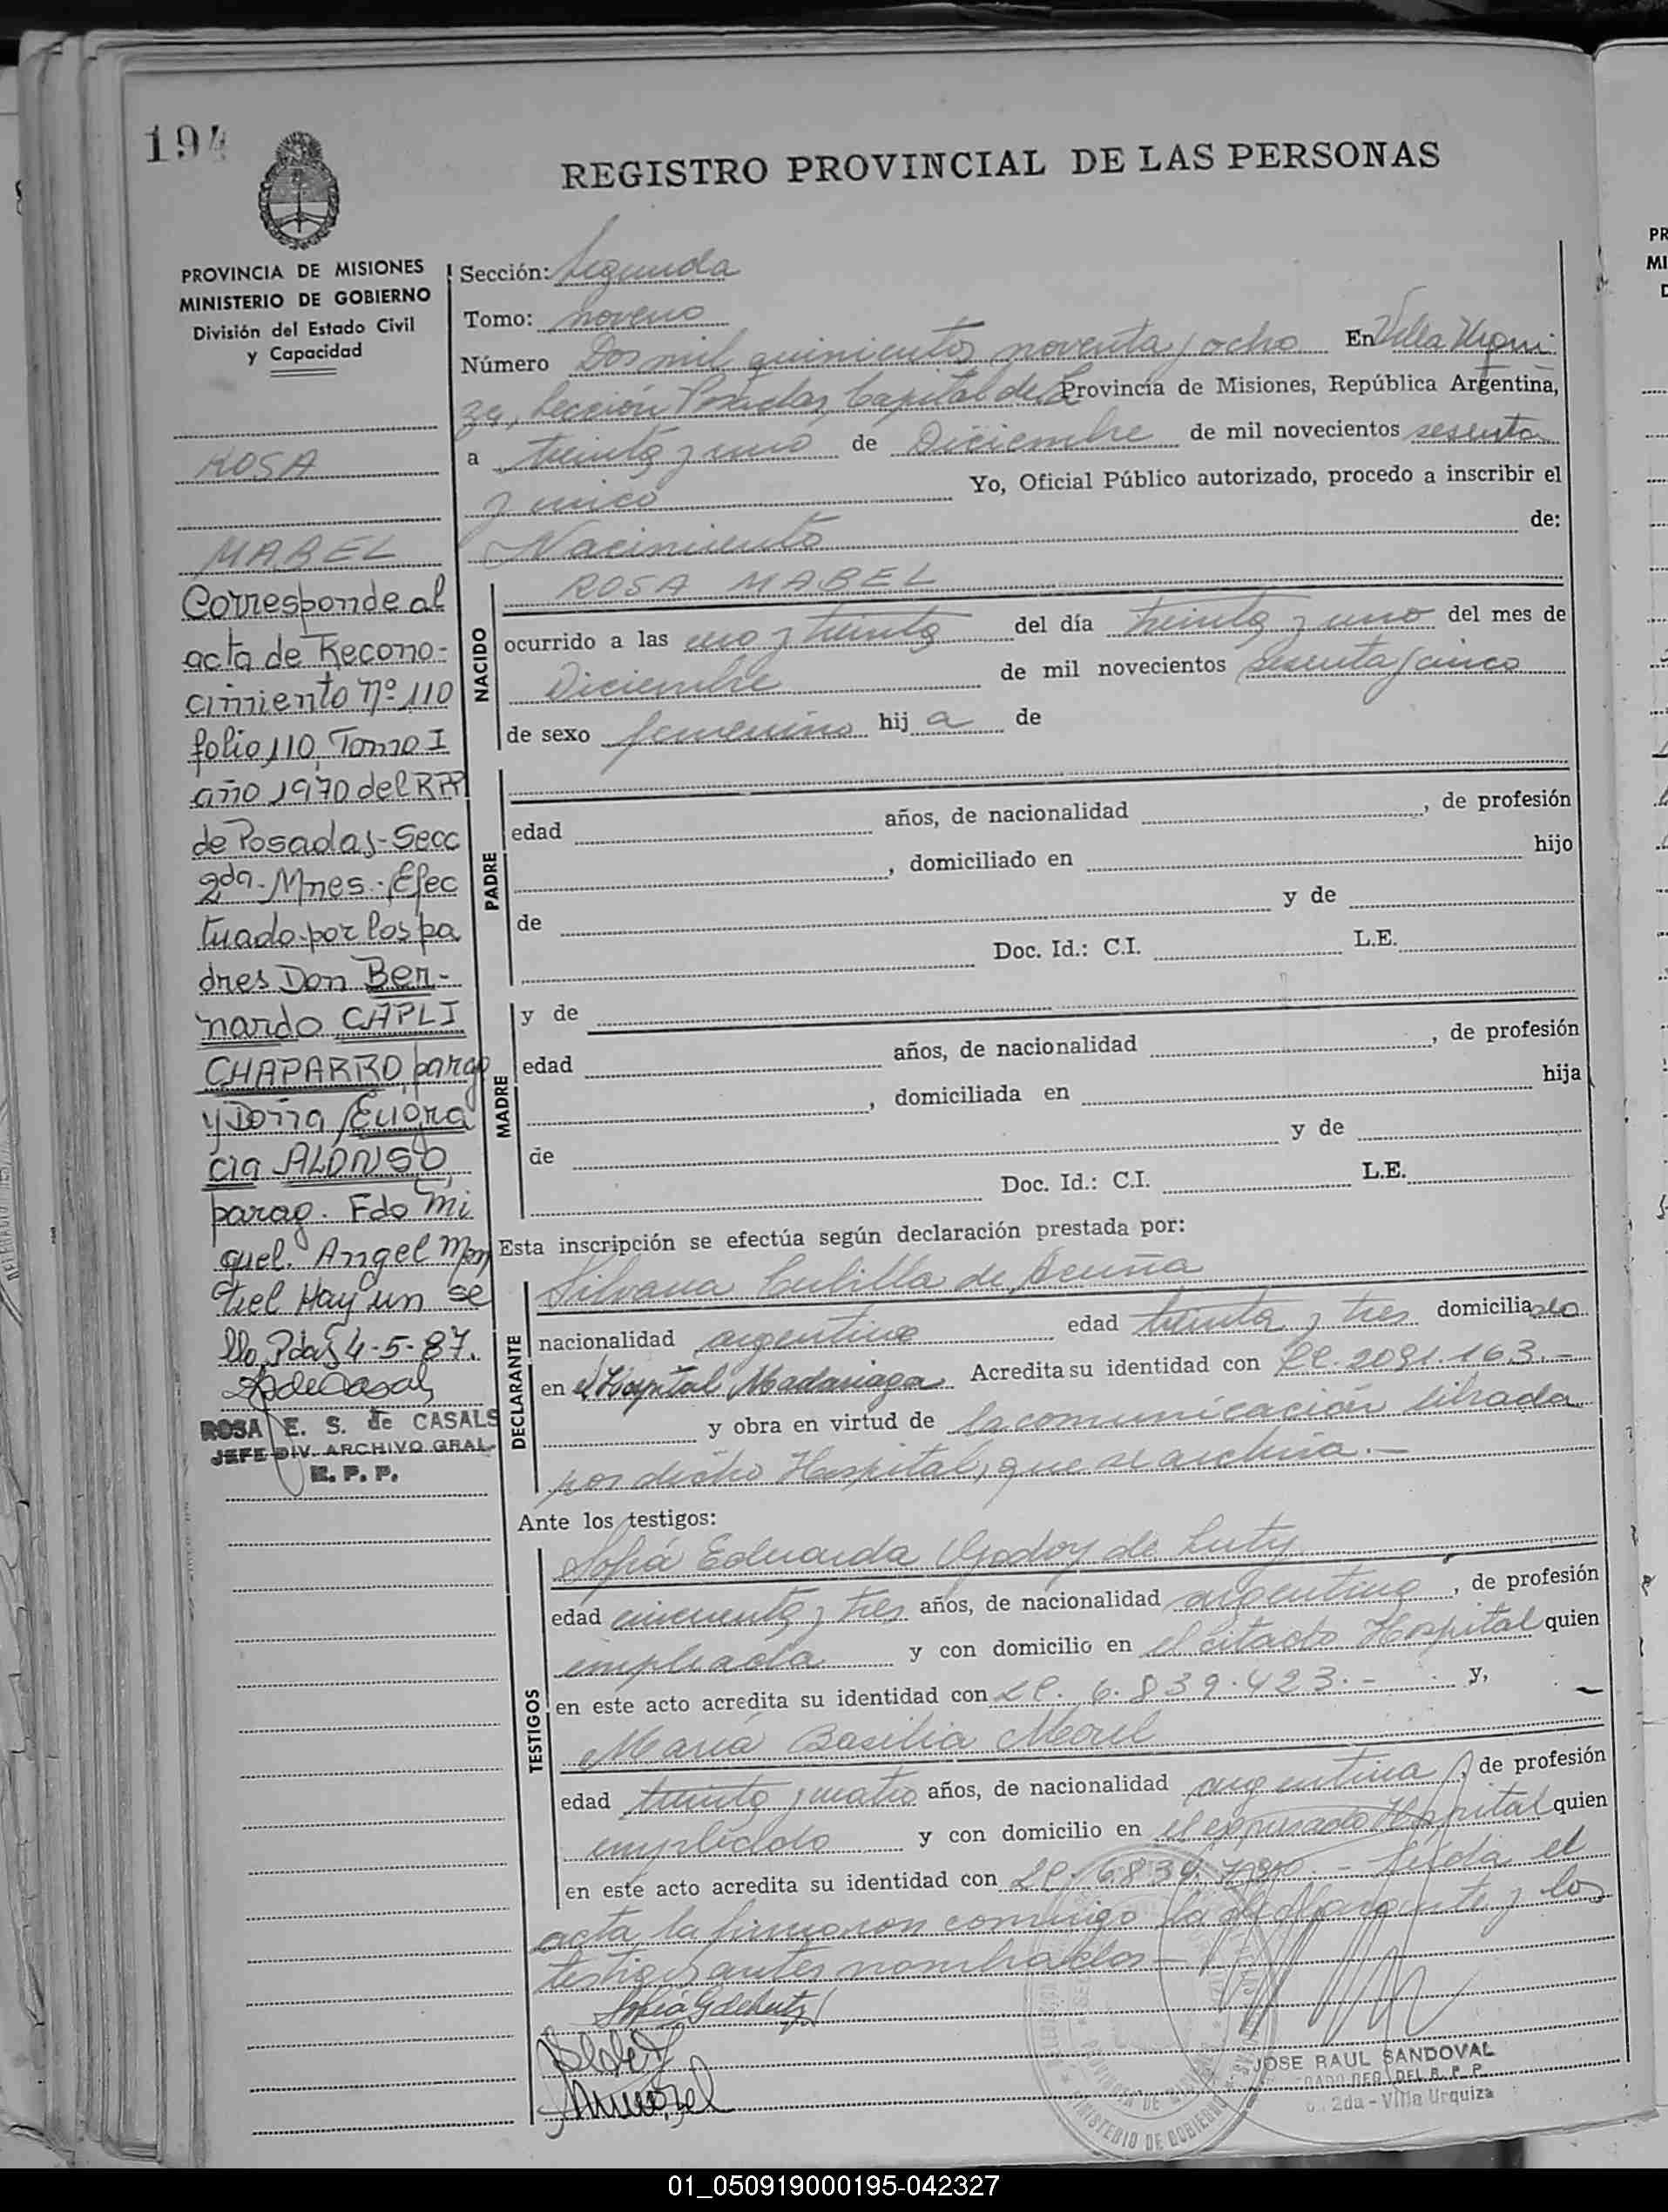 194
REGISTRO PROVINCIAL DE LAS PERSONAS
PROVINCIA DE MISIONES
MINISTERIO DE GOBIERNO
División del Estado Civil
y Capacidad
ROSA
MABEL
Corresponde al
acta de Recono-
cimiento nº 110
folio 110, Tomo I
año 1970 del RPP
de Posadas - Secc
2da. Mnes. Efec
tuado por los pa
dres Don Ber-
nardo CAPLI
CHAPARRO, parag
y Doña Eugra
cia ALONSO
parag. Fdo Mi
guel Angel Mon
tiel Hay un se
llo. Pdas 4-5-87.
ROSA E. S. de CASALS
JEFE DIV. ARCHIVO GRAL.
R. P. P.
Sección: Segunda
Tomo: noveno
Número Dos mil quinientos noventa y ocho En Villa Urqui
za, Sección Posadas, Capital de la Provincia de Misiones, República Argentina,
a treinta y uno de Diciembre de mil novecientos sesenta
y cinco Yo, Oficial Público autorizado, procedo a inscribir el
Nacimiento de:
NACIDO
ROSA MABEL
ocurrido a las uno y treinta del día treinta y uno del mes de
Diciembre de mil novecientos sesenta y cinco
de sexo femenino hij a de
PADRE
edad años, de nacionalidad , de profesión
, domiciliado en hijo
de y de
Doc. Id.: C.I. L.E.
MADRE
y de
edad años, de nacionalidad , de profesión
, domiciliada en hija
de y de
Doc. Id.: C.I. L.E.
Esta inscripción se efectúa según declaración prestada por:
DECLARANTE
Silvana Cubilla de Acuña
nacionalidad argentina edad treinta y tres domicilia da
en el Hospital Madariaga Acredita su identidad con LC. 2091.163.-
y obra en virtud de la comunicación librada
por dicho Hospital, que se archiva.-
Ante los testigos:
TESTIGOS
Sofía Eduarda Godoy de Luty
edad cincuenta y tres años, de nacionalidad argentina , de profesión
empleada y con domicilio en el citado Hospital quien
en este acto acredita su identidad con LC. 6.839.423.- y,
María Basilia Morel
edad treinta y cuatro años, de nacionalidad argentina , de profesión
empleada y con domicilio en el expresado Hospital quien
en este acto acredita su identidad con LC. - Leída el
acta, la firmaron conmigo la declarante y los
testigos antes nombrados -
Sofía G de Luty
JOSE RAUL SANDOVAL
DEL R. P. P.
2da - Villa Urquiza
MINISTERIO DE GOBIERNO
01_050919000195-042327